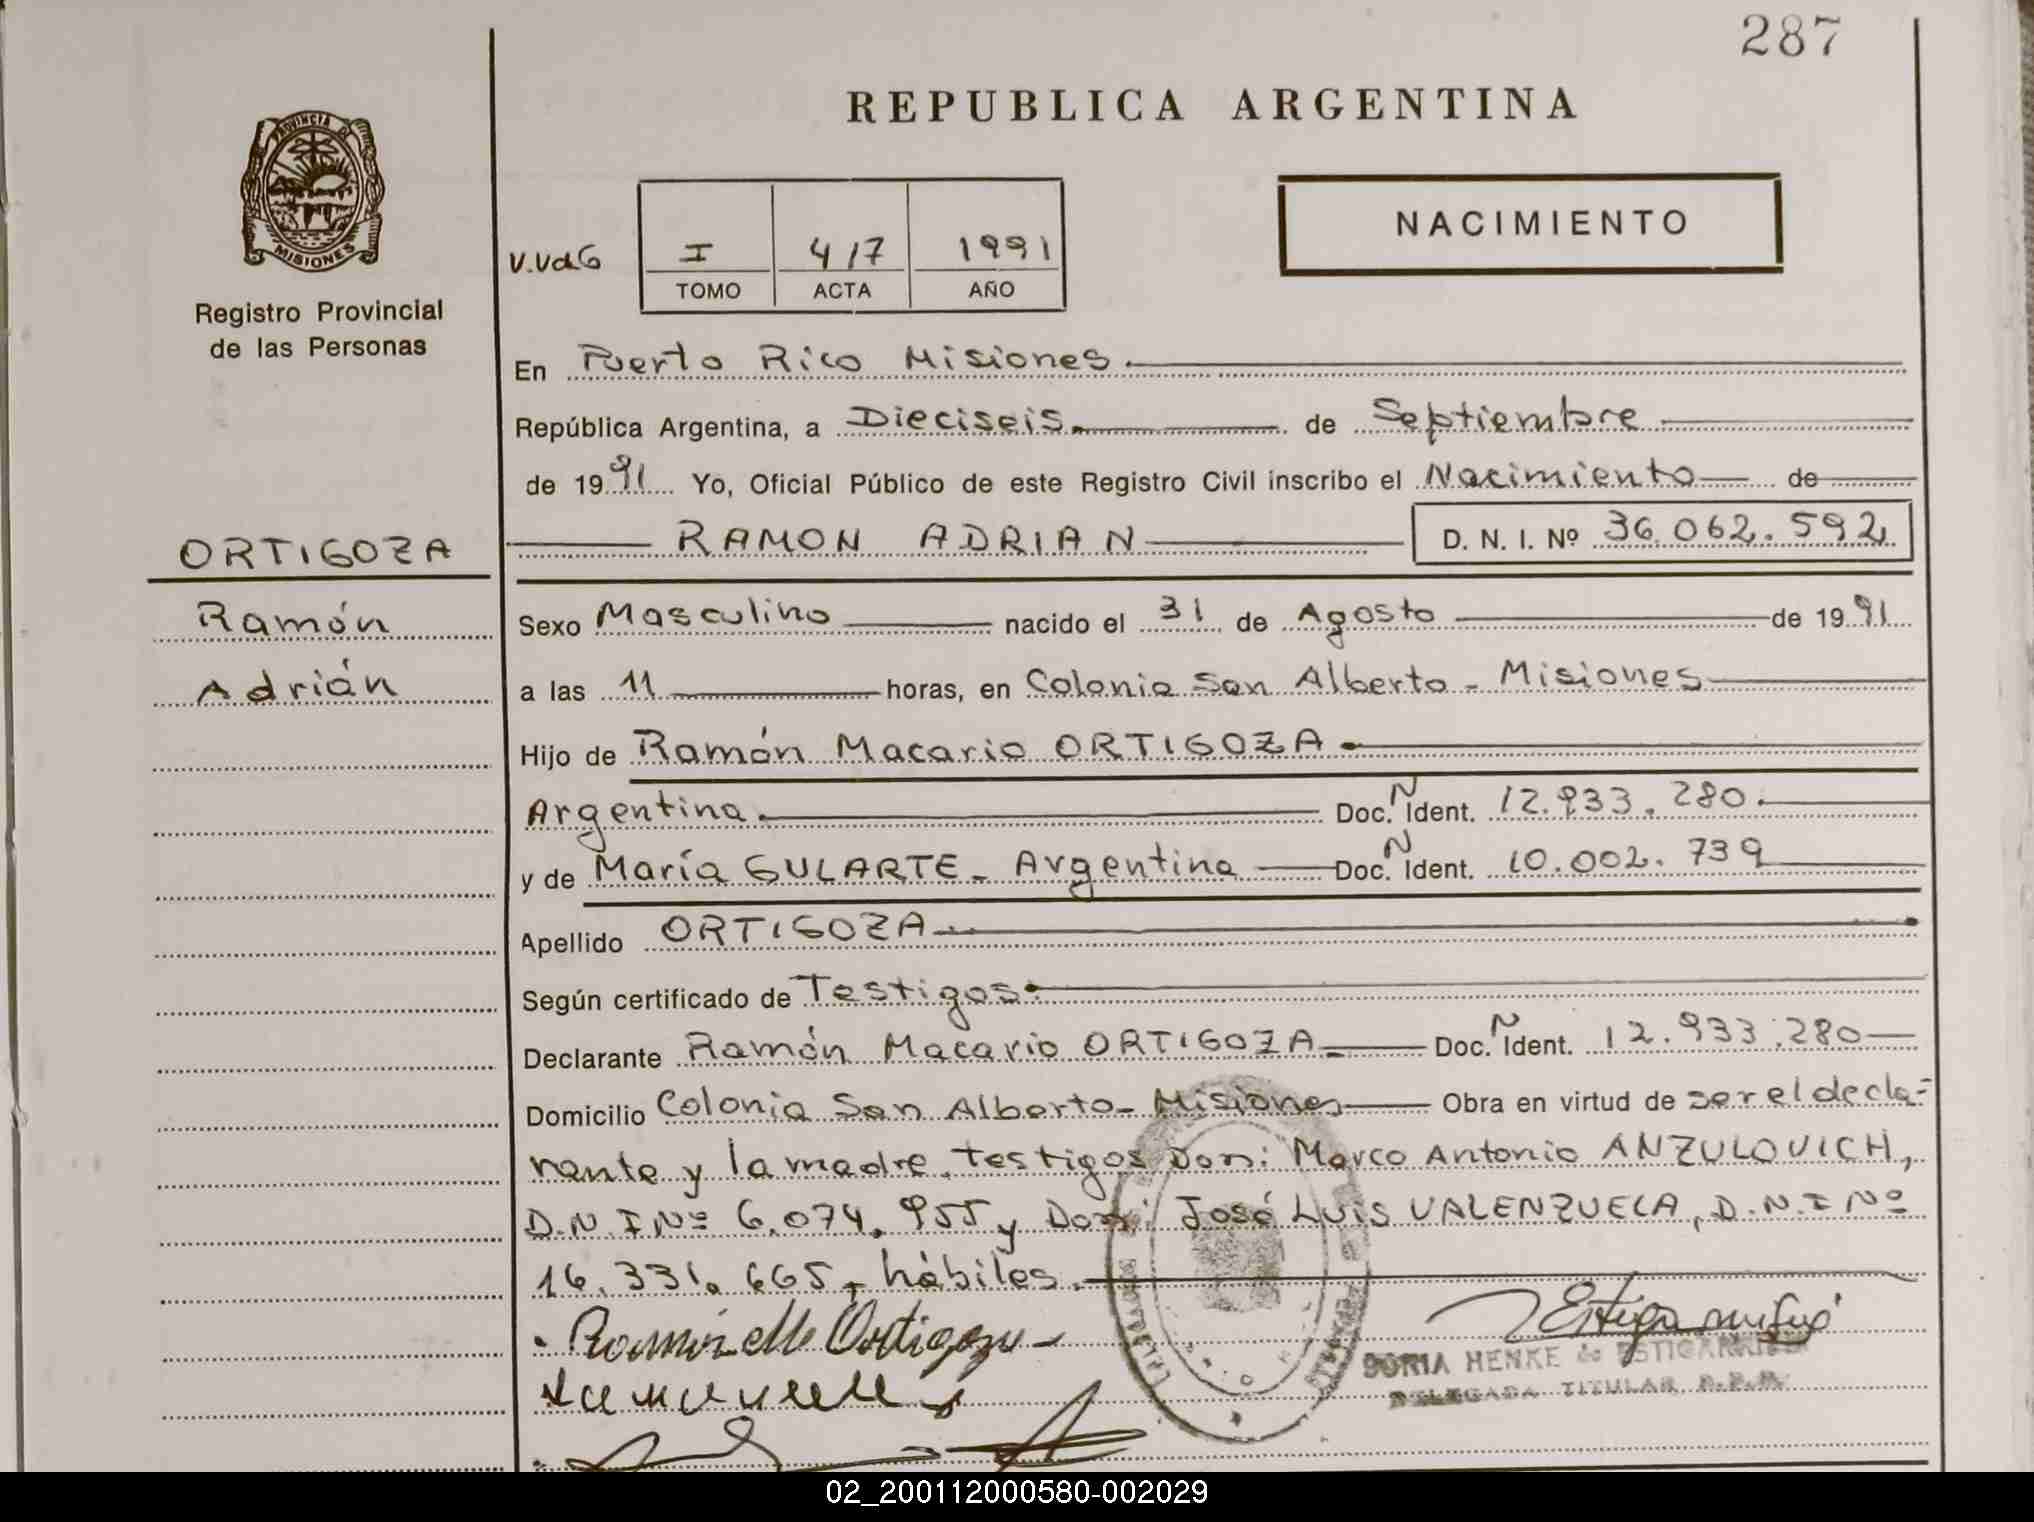 287
REPUBLICA ARGENTINA
NACIMIENTO
PROVINCIA DE
MISIONES
Registro Provincial
de las Personas
V.VdG
I 417 1991
TOMO ACTA AÑO
En Puerto Rico Misiones.
República Argentina, a Dieciseis. de Septiembre
de 1991 Yo, Oficial Público de este Registro Civil inscribo el Nacimiento de
ORTIGOZA
RAMON ADRIAN D. N. I. Nº 36.062.592
Ramón
Adrián
Sexo Masculino nacido el 31 de Agosto de 1991
a las 11 horas, en Colonia San Alberto - Misiones
Hijo de Ramón Macario ORTIGOZA
Argentina. Doc. N Ident. 12.933.280.
y de María GULARTE - Argentina Doc. N Ident. 10.002.739
Apellido ORTIGOZA
Según certificado de Testigos
Declarante Ramón Macario ORTIGOZA Doc. N Ident. 12.933.280
Domicilio Colonia San Alberto - Misiones Obra en virtud de ser el decla=
rante y la madre. testigos Don: Marco Antonio ANZULOVICH,
D.N.I Nº 6.074.955 y Don: José Luis VALENZUELA, D.N.I Nº
16.331.665, hábiles.
Ramón M Ortigoza
SORIA HENKE de ESTIGARRIBIA
DELEGADA TITULAR R.P.P.
02_200112000580-002029